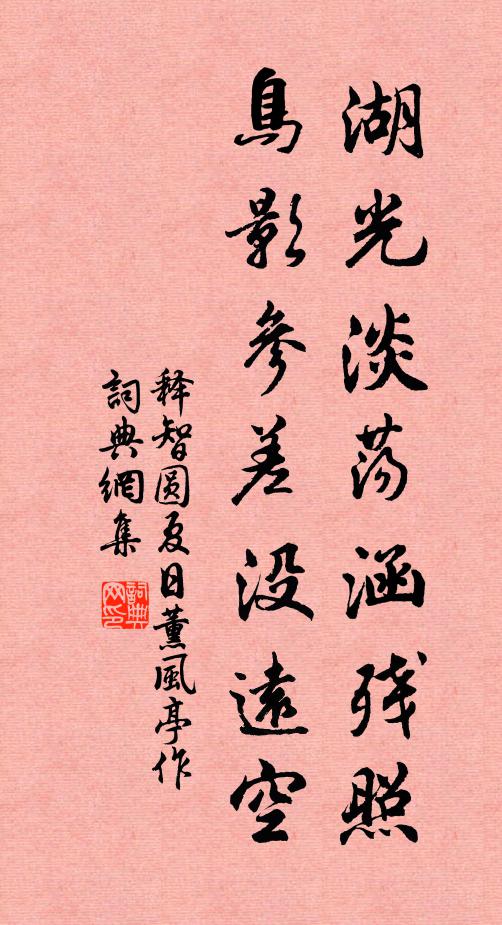 湖光淡荡涵残照
鳥影參差没遠空
释智圆夏日薰風亭作
詞典網集
詞典網印